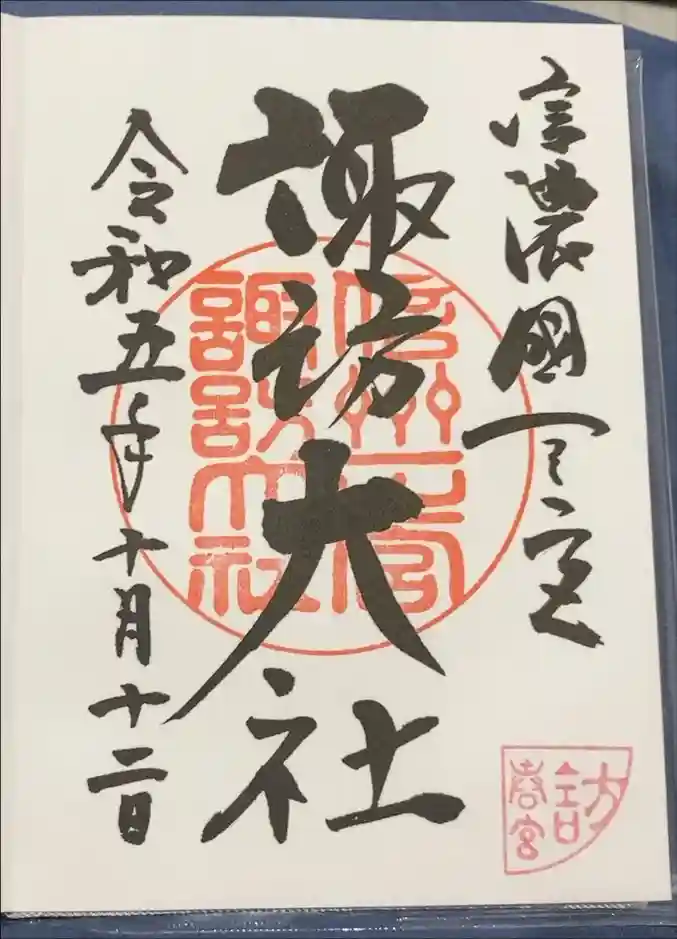 信濃國一之宮
諏訪大社
令和五年十月十二日
信州一之宮
諏訪大社
春宮